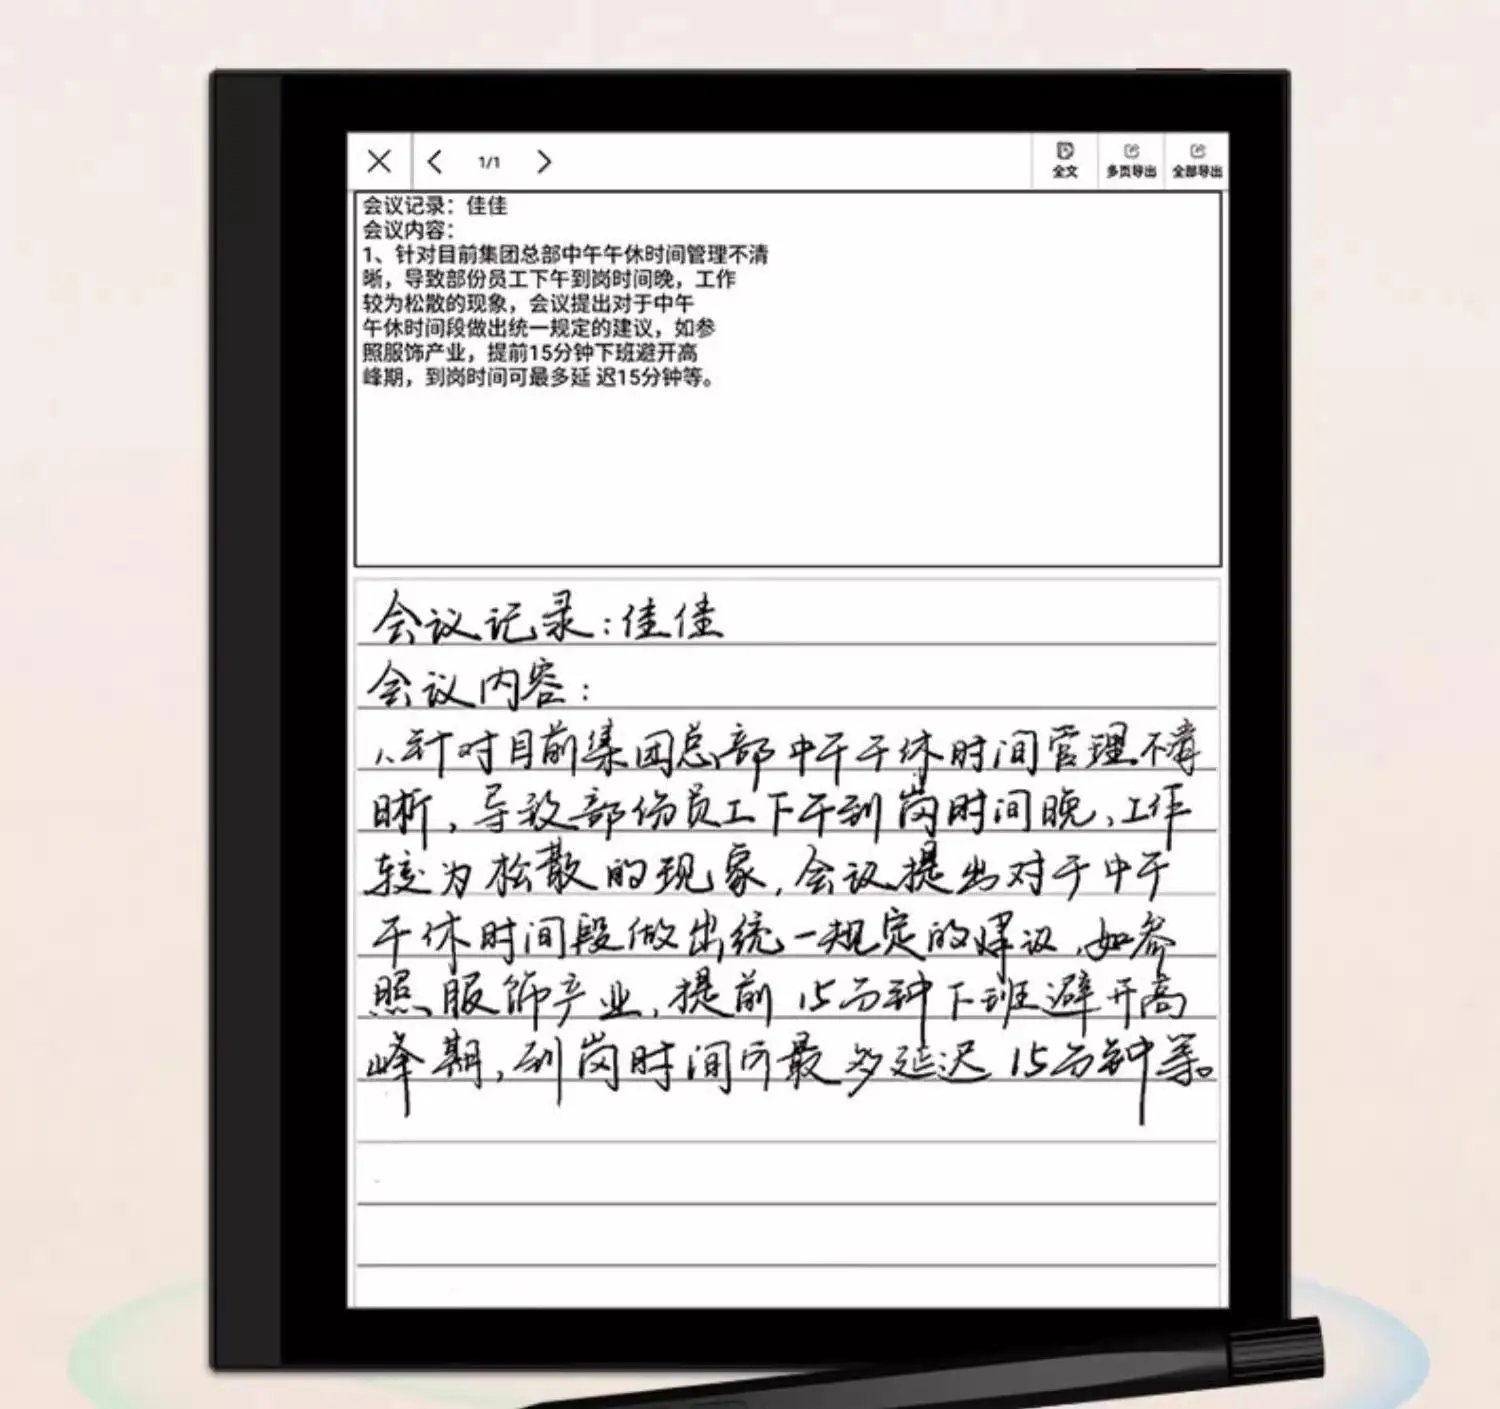 1/1
全文
多页导出
全部导出
会议记录：佳佳
会议内容：
1、针对目前集团总部中午午休时间管理不清
晰，导致部份员工下午到岗时间晚，工作
较为松散的现象，会议提出对于中午
午休时间段做出统一规定的建议，如参
照服饰产业，提前15分钟下班避开高
峰期，到岗时间可最多延 迟15分钟等。
会议记录：佳佳
会议内容：
1、针对目前集团总部中午午休时间管理不清
晰，导致部份员工下午到岗时间晚，工作
较为松散的现象，会议提出对于中午
午休时间段做出统一规定的建议，如参
照服饰产业，提前15分钟下班避开高
峰期，到岗时间可最多延迟15分钟等。